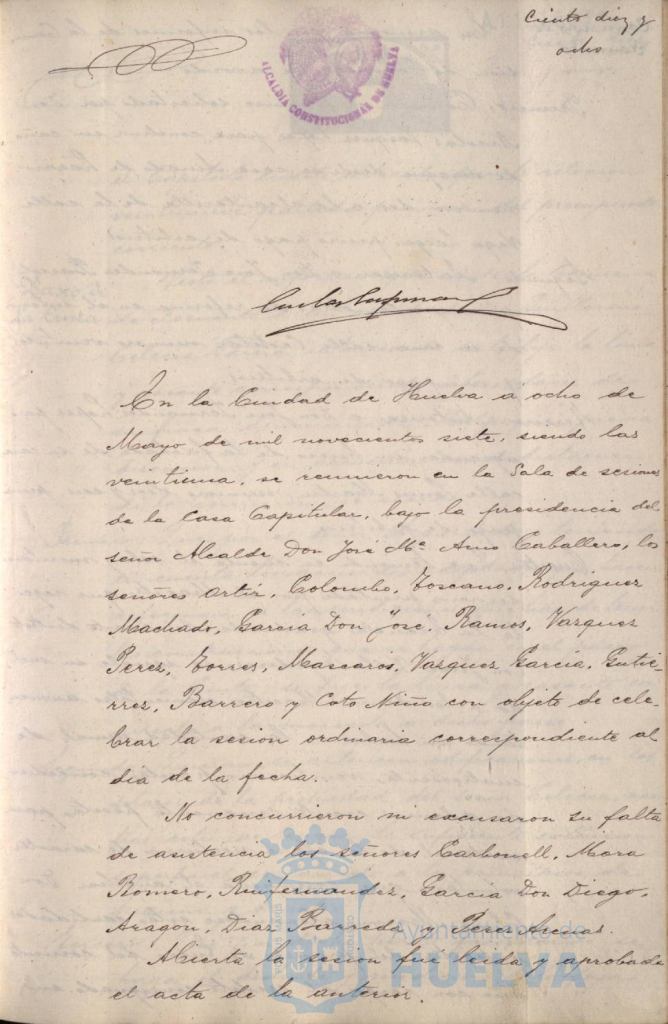 Ciento diez y
ocho
ALCALDIA CONSTITUCIONAL DE HUELVA
En la Ciudad de Huelva a ocho de
Mayo de mil novecientos siete, siendo las
veintiuna, se reunieron en la Sala de sesiones
de la Casa Capitular, bajo la presidencia del
señor Alcalde Don José Mª Amo Caballero, los
señores Ortiz, Colombo, Toscano, Rodriguez
Machado, Garcia Don José, Ramos, Vazquez
Perez, Torres, Mascarós, Vazquez Garcia, Gutie-
rrez, Barrero y Coto Niño con objeto de cele-
brar la sesion ordinaria correspondiente al
dia de la fecha.
No concurrieron ni excusaron su falta
de asistencia los señores Carbonell, Mora
Romero, Ruifernandez, Garcia Don Diego,
Aragon, Diaz Barreda y Perez
Abierta la sesion fué leida y aprobada
el acta de la anterior.
Ayuntamiento de
HUELVA